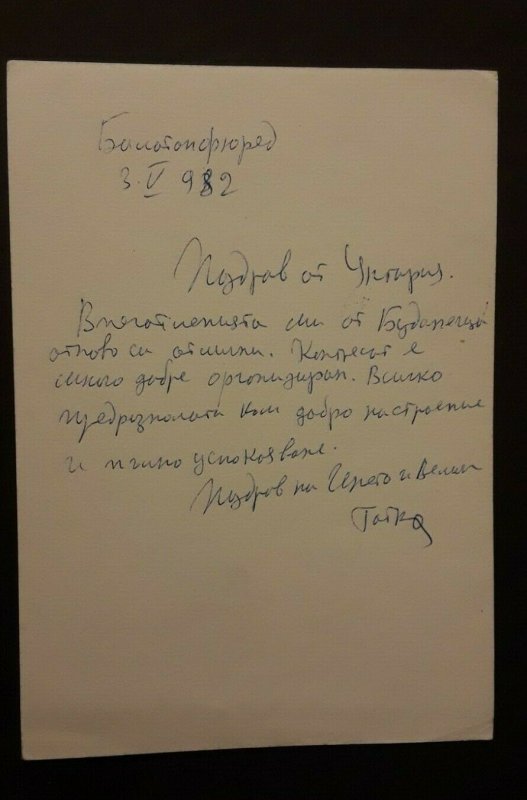 Балатонфюред
3.V 982
Поздрав от Унгария.
Впечатленията ми от Будапеща
отново са отлични. Конгресът е
много добре организиран. Всичко
предразполага към добро настроение
и пълно успокояване.
Поздрав на и Вели
Татко